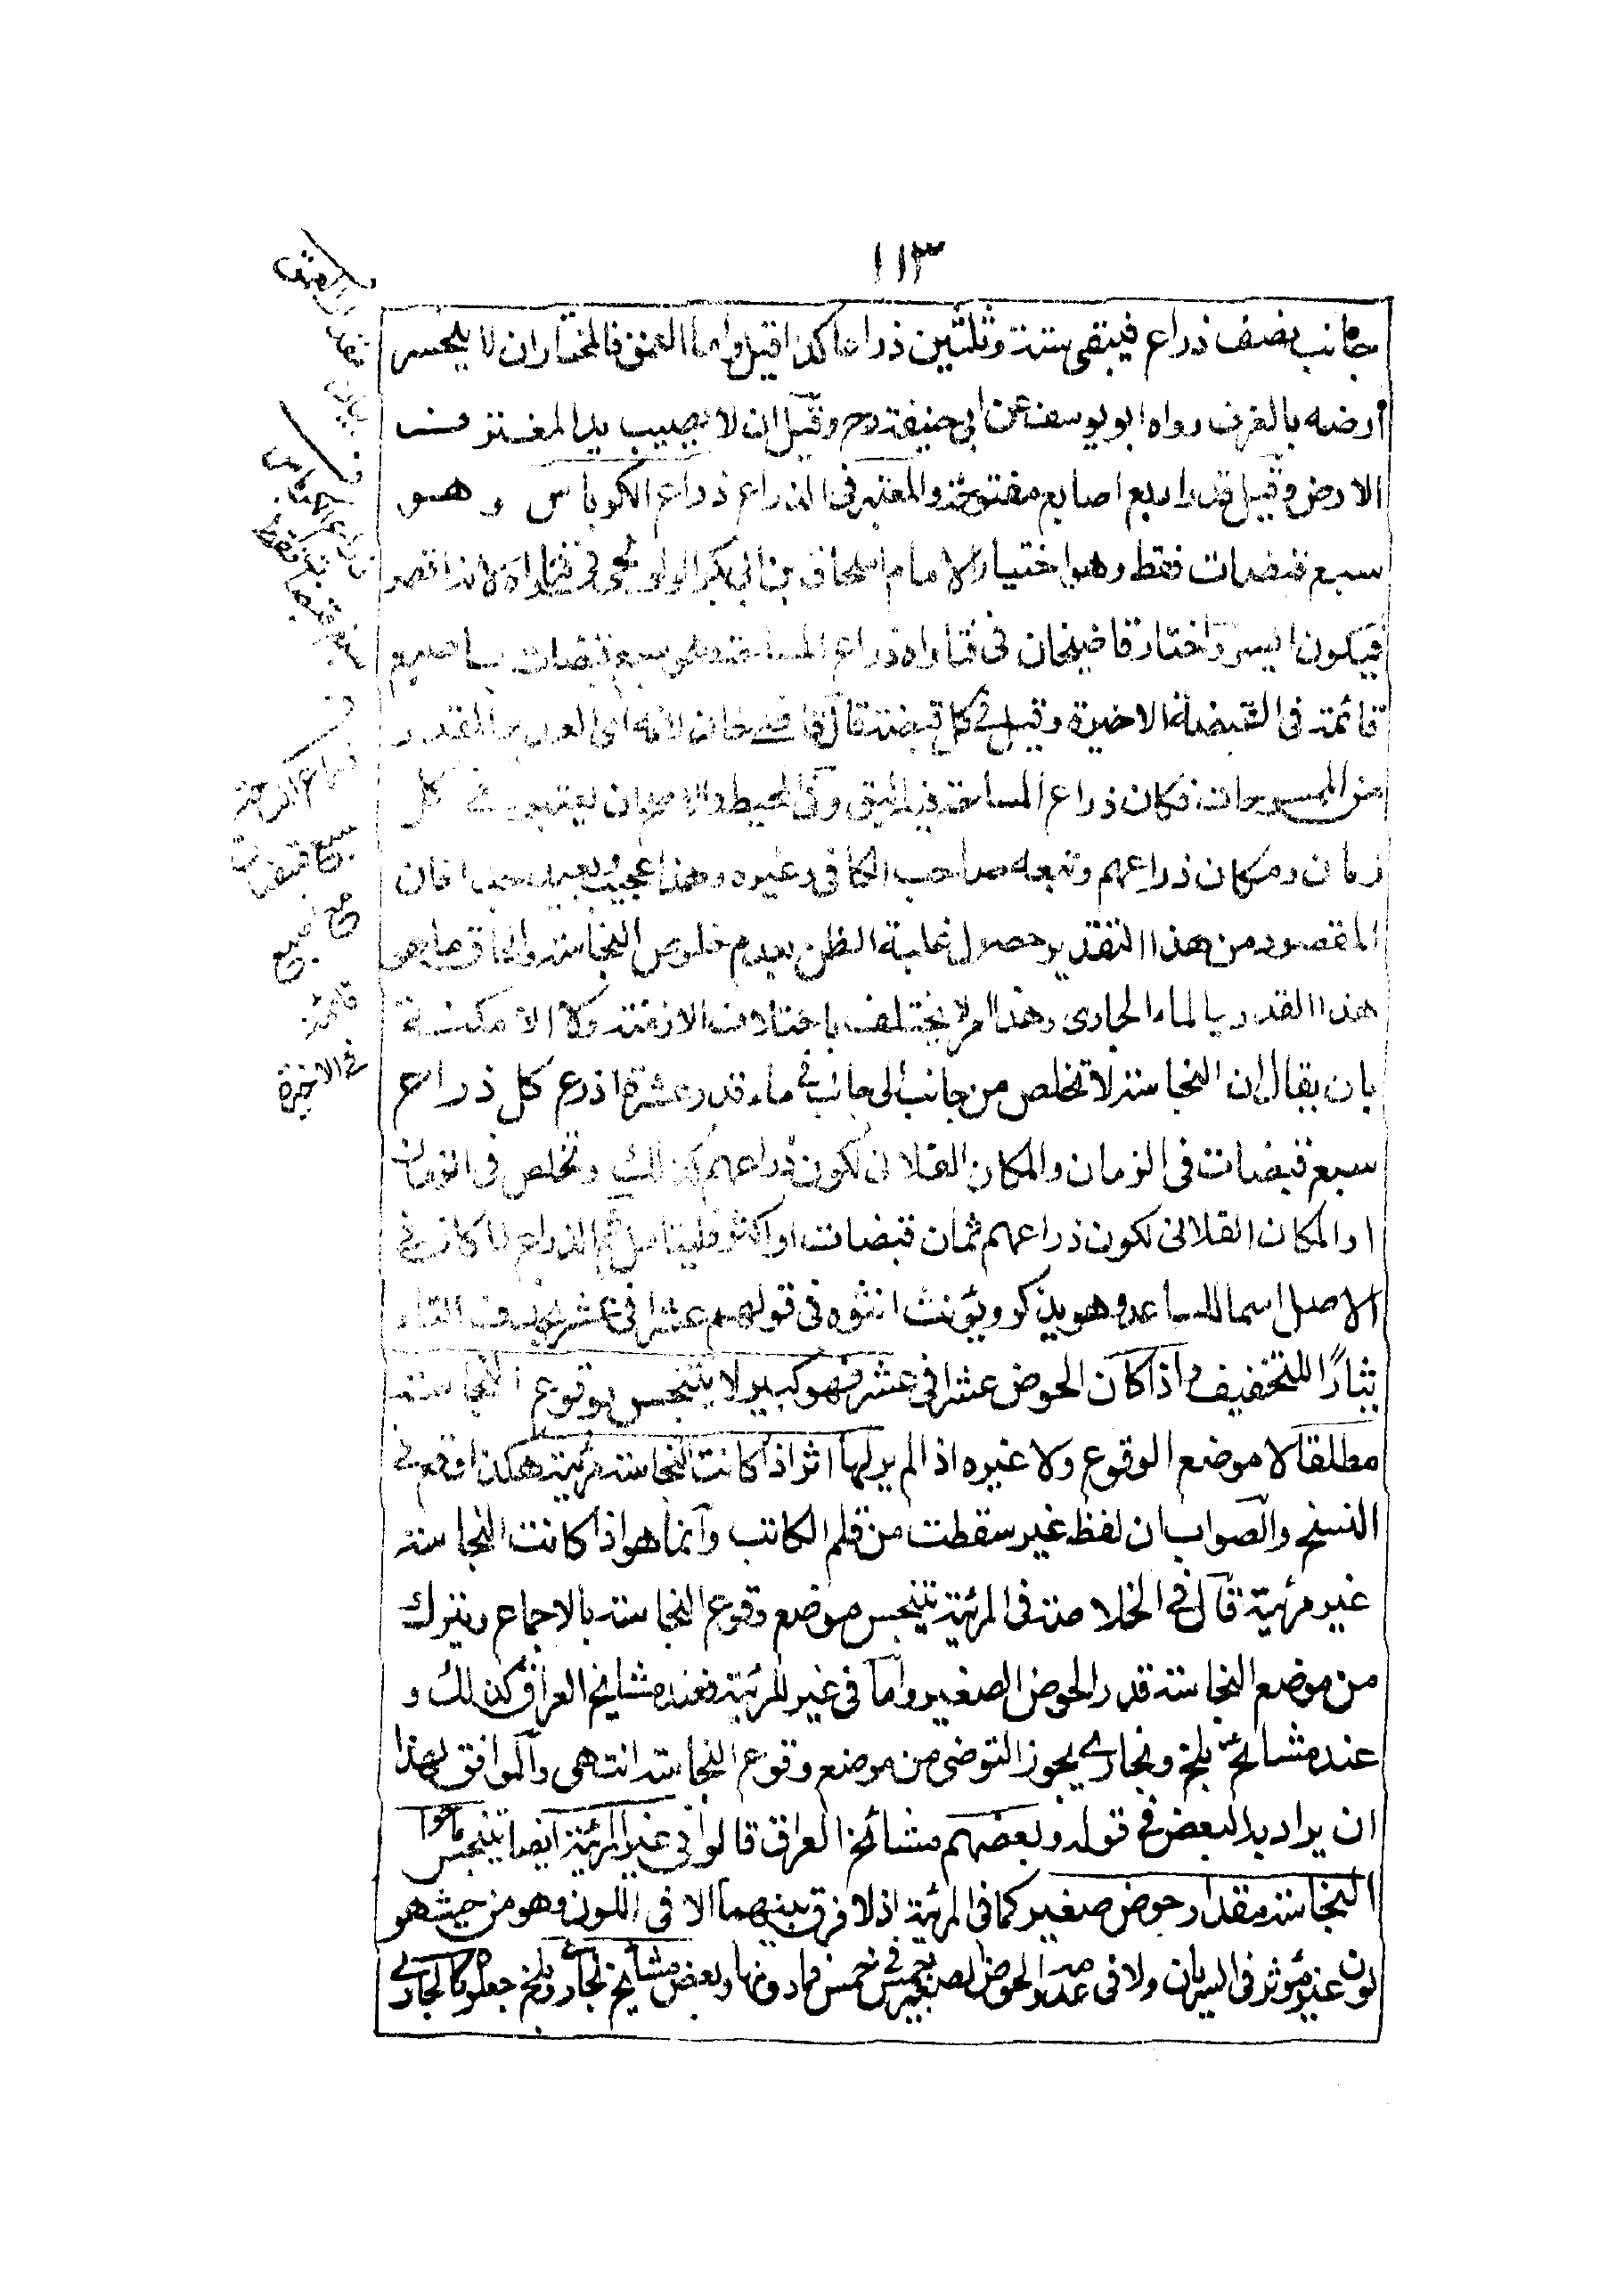 ١١٣
جانب نصف ذراع فيبقى ستة وثلثين ذراعا كذا قيل واما العمق فالمختار ان لا ينحسر
ارضه بالغرف رواه ابو يوسف عن ابي حنيفة رح وقيل ان لا يصيب يد المغترف
الارض وقيل قدر اربع اصابع مفتوحة والمعتبر في الذراع ذراع الكرباس وهو
سبع قبضات فقط وهو اختيار الامام اسحاق بن ابي بكر الولوالجي في فتاواه لانه اقصر
فيكون ايسر واختار قاضيخان في فتاواه ذراع المساحة وهو سبع قبضات باصبع
قائمة في القبضة الاخيرة وقيل في كل قبضة قال قاضيخان لانه اي
من الممسوحات فكان ذراع المساحة فيه اليق وفي المحيط والاصح ان يعتبر في كل
زمان ومكان ذراعهم وتبعه صاحب الكافي وغيره وهذا عجيب وبعيد جدا فان
المقصود من هذا التقدير حصول غلبة الظن بعدم خلوص النجاسة والحاق ما هو
هذا القدر بالماء الجاري وهذا امر لا يختلف باختلاف الازمنة ولا الامكنة
بان يقال ان النجاسة لا تخلص من جانب الى جانب في ماء قدر عشرة اذرع كل ذراع
سبع قبضات في الزمان والمكان الفلاني لكون ذراعهم كذلك وتخلص في الزمان
او المكان الفلاني لكون ذراعهم ثمان قبضات او اكثر فليتامل ثم الذراع لما كان في
الاصل اسما للساعد وهو يذكر ويؤنث انثوه في قولهم عشرا في عشر بحذف التاء
يثارًا للتخفيف واذا كان الحوض عشرا في عشر فهو كبير لا يتنجس بوقوع النجاسة
مطلقا لا موضع الوقوع ولا غيره اذا لم ير لها اثر اذا كانت النجاسة مرئية هكذا وقع في
النسخ والصواب ان لفظ غير سقطت من قلم الكاتب وانما هو اذا كانت النجاسة
غير مرئية قال في الخلاصة في المرئية يتنجس موضع وقوع النجاسة بالاجماع ويترك
من موضع النجاسة قدر الحوض الصغير واما في غير المرئية فعند مشايخ العراق كذلك و
عند مشائخ بلخ وبخارى يجوز التوضى من موضع وقوع النجاسة انتهى والموافق لهذا
ان يراد بالبعض في قوله وبعضهم مشائخ العراق قالوا في غير المرئية ايضا يتنجس ما حول
النجاسة مقدار حوض صغير كما في المرئية اذ لا فرق بينهما الا في اللون وهو من حيث هو
لون غير مؤثر في السريان ولا في عدمه الحوض الصغير خمس في خمس فما دونها وبعض مشايخ بخارى وبلخ جعلوه كالجاري
ذراع
سبع قبضات
مع اصبع
قائمة
في الاخيرة